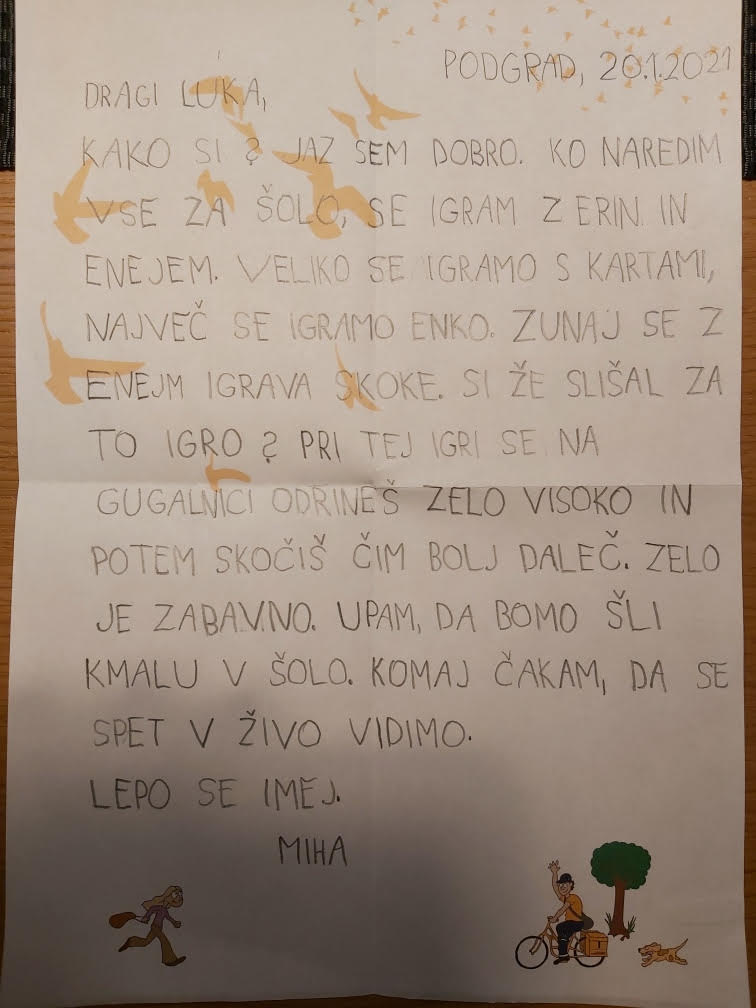 PODGRAD, 20.1.2021
DRAGI LUKA,
KAKO SI? JAZ SEM DOBRO. KO NAREDIM
VSE ZA ŠOLO, SE IGRAM Z ERIN IN
ENEJEM. VELIKO SE IGRAMO S KARTAMI,
NAJVEČ SE IGRAMO ENKO. ZUNAJ SE Z
ENEJM IGRAVA SKOKE. SI ŽE SLIŠAL ZA
TO IGRO? PRI TEJ IGRI SE NA
GUGALNICI ODRINEŠ ZELO VISOKO IN
POTEM SKOČIŠ ČIM BOLJ DALEČ. ZELO
JE ZABAVNO. UPAM, DA BOMO ŠLI
KMALU V ŠOLO. KOMAJ ČAKAM, DA SE
SPET V ŽIVO VIDIMO.
LEPO SE IMEJ.
MIHA